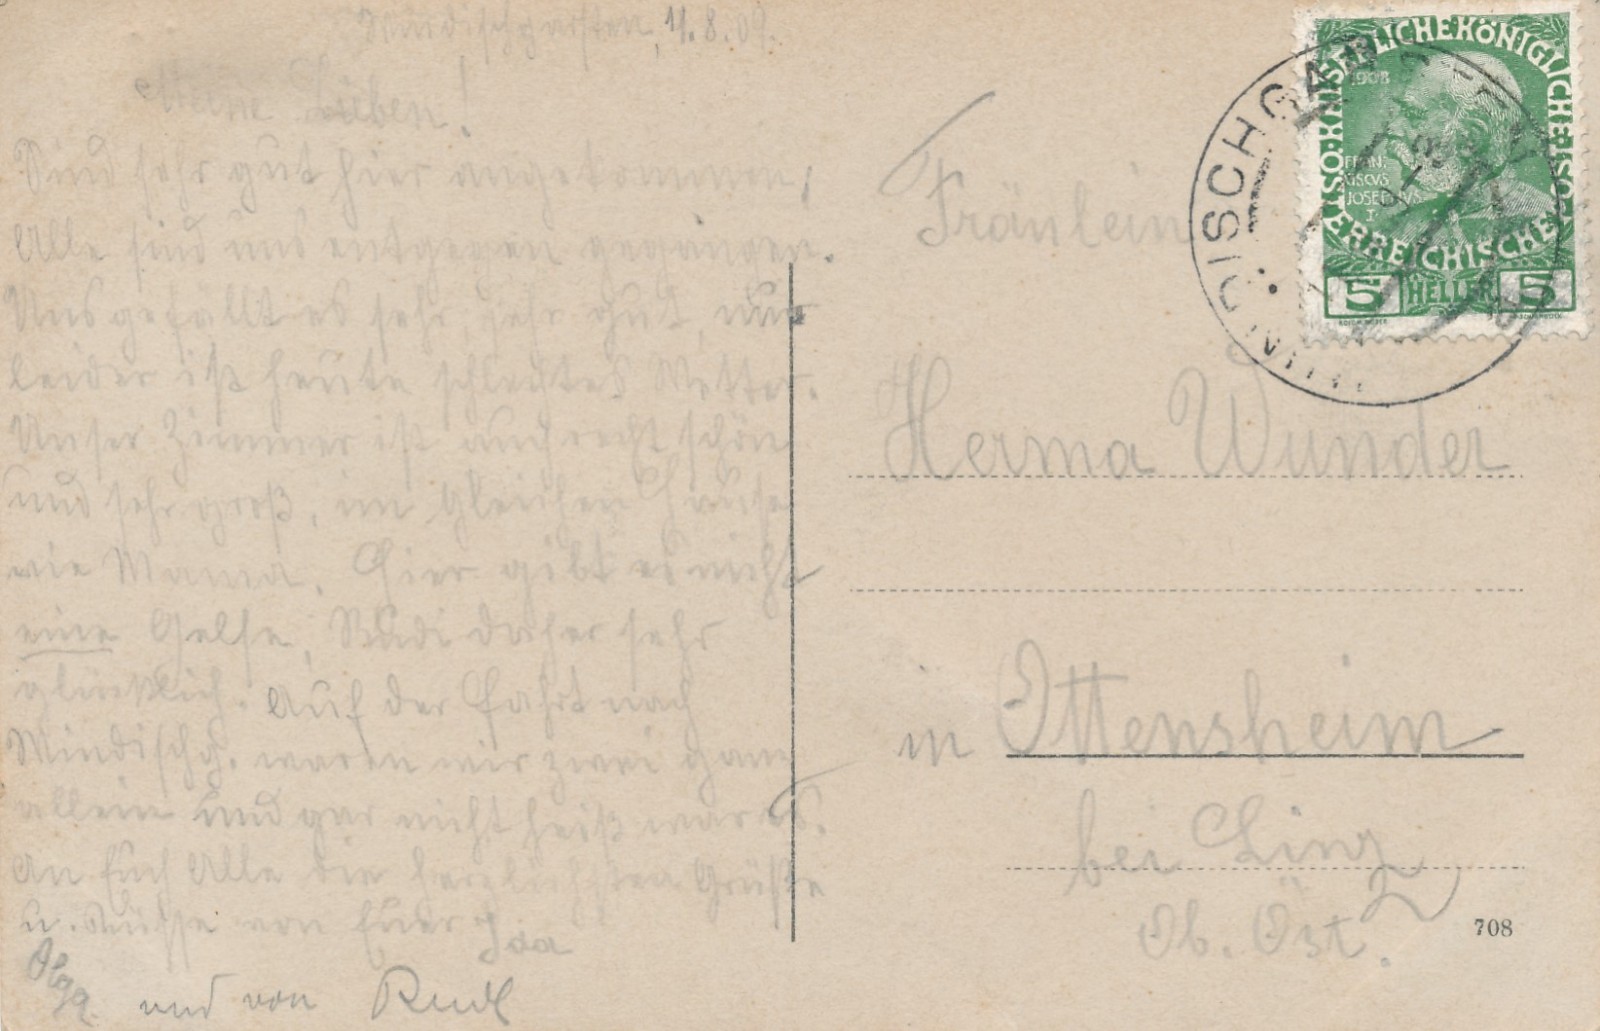 Windischgarsten, 11.8.09.
Meine Lieben!
Sind sehr gut hier angekommen,
Alle sind uns entgegen gegangen.
Uns gefällt es sehr, sehr gut, nur
leider ist heute schlechtes Wetter.
Unser Zimmer ist auch recht schön
und sehr groß, im gleichen Hause
wie Mama. Hier gibt es nicht
eine Gelse, Rudi daher sehr
glücklich. Auf der Fahrt nach
Windischg. waren wir zwei ganz
allein und gar nicht heiß war es.
An Euch Alle die herzlichsten Grüße
u. Küsse von Euer Ida
Olga.
und von Rudl
Fräulein
Herma Wunder
in Ottensheim
bei Linz
Ob. Öst.
708
KAISERLICHEKÖNIGLICHE
ÖSTERREICHISCHE
1908
FRAN.
CISCVS
JOSEPHVS
I
5 HELLER 5